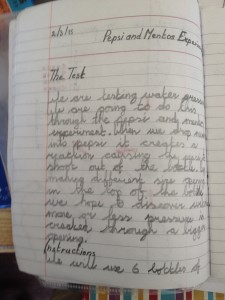 2/3/15
Pepsi and Mentos Experi
The Task
We are testing water pressure
We are going to do this
through the pepsi and mentos
experiment. When we drop
into pepsi it creates a
reaction causing the
shoot out of the bottle.
making different size
in the top of the bottle
we hope to discover
more or less pressure is
created through a bigger
opening.
Instructions
We will use 6 bottles of